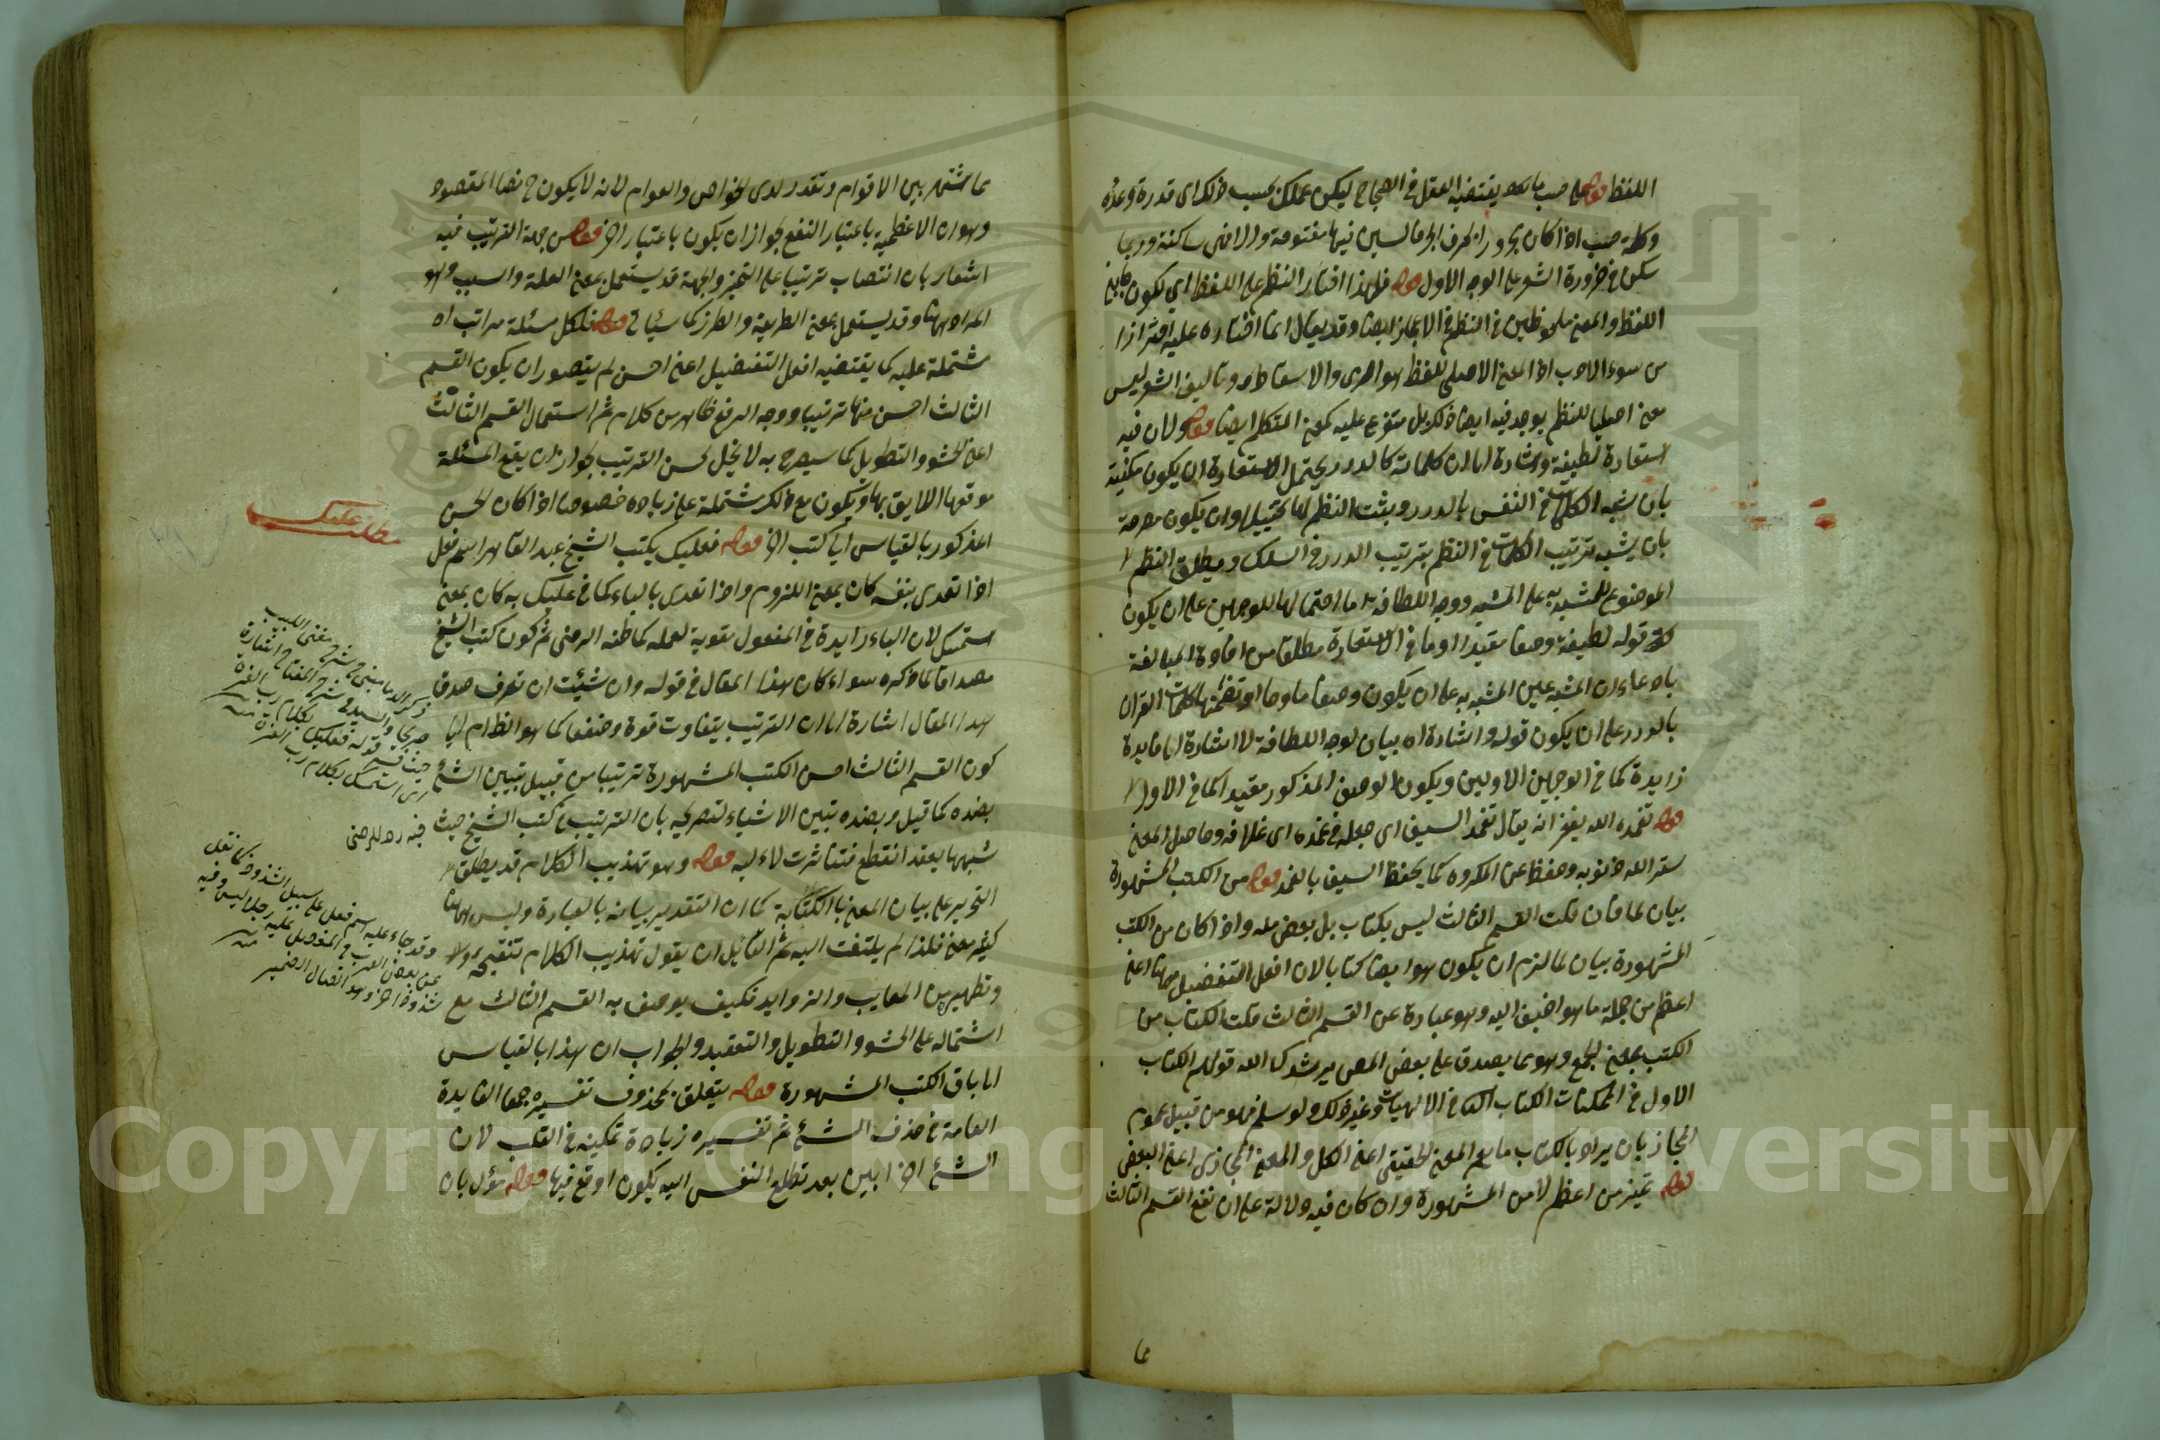 اللفظ قوله على حسب ما يقتضيه العقل في الصحاح ليكن عملك بحسب ذلك اى قدره وعدده
وكلمة حسب اذا كان مجرورا بحرف الجر فالسين فيها مفتوحة والا فهى ساكنة وربما
سكن في ضرورة الشعر على الوجه الاول قوله فلهذا اختار النظم على اللفظ اى لكون
اللفظ والمعنى ملحوظين في النظم في الاعجاز ايضا وقد يقال انما اختاره عليه احترازا
من سوء الادب اذ المعنى الاصلى للفظ هو الرمى والاسقاط وتاليف الشعر ليس
معنى اصليا للنظم يوجد فيه ايضا ذلك بل متفرع عليه كمعنى المتكلم ايضا قوله ولان فيه
استعارة لطيفة واشارة الى ان كلماته كالدرر يحتمل الاستعارة ان يكون مكنية
بان شبه الكلمات في النفس بالدرر ويثبت النظم لها تخييلا وان يكون مصرحة
بان يشبه ترتيب الكلمات في النظم بترتيب الدرر في السلك ويطلق النظم
الموضوع للمشبه به على المشبه ووجه اللطافة اما احتمالها للوجهين على ان يكون
قوله لطيفة وصفا مقيدا او ما في الاستعارة مطلقا من افادة المبالغة
بادعاء ان المشبه عين المشبه به على ان يكون وصفا مادحا او تضمنها كلمات القران
بالدرر على ان يكون قوله واشارة اه بيان لوجه اللطافة لا اشارة الى فايدة
زايدة كما في الوجهين الاولين ويكون الوصف المذكور مقيدا كما في الاول
قوله تغمده الله بغفرانه يقال تغمد السيف اى جعله في غمده اى غلافه وحاصل المعنى
ستر الله ذنوبه وحفظ عن المكروه كما يحفظ السيف بالغمد قوله من الكتب المشهورة
بيان لما فان قلت القسم الثالث ليس بكتاب بل بعض منه واذا كان من الكتب
المشهورة بيان لما لزم ان يكون هو ايضا كتابا لان افعل التفضيل ههنا اعنى
اعظم من جملة ما هو اضيف اليه وهو عبارة عن القسم الثالث قلت الكتاب من
الكتب بمعنى الجمع وهو مما يصدق على بعض المص يرشدك الله قولهم الكتاب
الاول في الممكنات الكتاب الثاني في الالهيات وغير ذلك ولو سلم فهو من قبيل عموم
المجاز بان يراد بالكتاب ما يعم المعنى الحقيقى اعنى الكل والمعنى المجازى اعنى البعض
قوله تميز من اعظم لا من المشهورة وان كان فيه دلالة على ان نفع القسم الثالث
مما
مما اشتهر بين الاقوام وتقدر لدى الخواص والعوام لانه لا يكون ح نصا المقصود
وهو الاعظمية باعتبار النفع لجواز ان يكون باعتبار اخر قوله من جهة الترتيب فيه
اشعار بان انتصاب ترتيبا على التميز والجهة قد يستعمل بمعنى العلة والسبب وهو
المراد ههنا وقد يستعمل بمعنى الطريقة والطرز كما سيأتى قوله فلكل مسئلة مراتب اه
مشتملة عليه كما يقتضيه افعل التفضيل اعنى احسن لم يتصور ان يكون القسم
الثالث احسن منها ترتيبا ووجه الدفع ظاهر من كلامه ثم استعمال القسم الثالث
اعنى الحشو والتطويل كما سيصرح به لا يخل بحسن الترتيب لجواز ان يقع المسئلة
موقعها اللايق بها ويكون مع ذلك مشتملة على زيادة خصوصا اذا كان الحسن
المذكور بالقياس الى كتب اخر قوله فعليك بكتب الشيخ عبد القاهر اسم فعل
اذا تعدى بنفسه كان بمعنى اللزوم واذا تعدى بالباء كما في عليك به كان بمعنى
استمسك لان الباء زايدة في المفعول تقوية لعمله كما ظنه الرضى ثم كون كتب الشيخ
مصداقا لما ذكره سواء كان هذا المقال في قوله وان شئت ان تعرف صدق
هذا المقال اشارة الى ان الترتيب يتفاوت قوة وضعفا كما هو الظاهر او الى
كون القسم الثالث احسن الكتب المشهورة ترتيبا من قبيل تبيين الشئ
بضده كما قيل وبضده تتبين الاشياء لتصريحه بان الترتيب في كتب الشيخ حيث
شبهها بعقد انقطع فتناثرت لاءليه قوله وهو تهذيب الكلام قد يطلق
التحرير على بيان المعنى بالكتابة كما ان التقدير بيانه بالعبارة وليس ههنا
كثير معنى فلذا لم يلتفت اليه ثم القائل ان يقول تهذيب الكلام تنقيحه
وتطهيره من المعايب والزوايد فكيف يوصف به القسم الثالث مع
اشتماله على الحشو والتطويل والتعقيد والجواب ان هذا بالقياس
الى باقى الكتب المشهورة قوله يتعلق بمحذوف تفسيره جمعا الفايدة
العامة في حذف الشئ ثم تفسيره زيادة تمكينه في القلب لان
الشئ اذا بين بعد تطلع النفس اليه يكون اوقع فيها قوله مؤل بان
مطلب عليك
ذكر الدمامينى في شرح مغنى اللبيب
والسيد في شرح المفتاح اشارة
حيث فسر قوله فعليك بكلام رب العزة
اى استمسك بكلام رب العزة منه
فيه رد للرضى
وقد جاء عليه اسم فعل على سبيل الشذوذ كما نقل
عن بعض العرب عليه رجلا ليس وفيه
شذوذ اخر وهو اتصال الضمير منه
Copyright © King Saud University